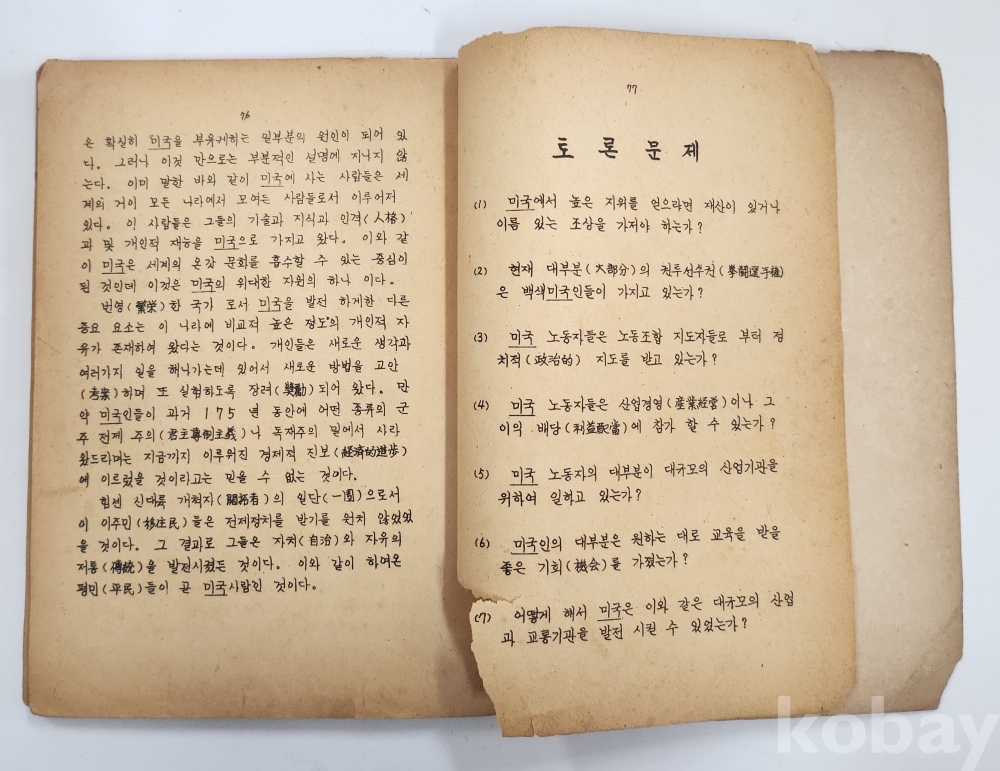 76
은 확실히 미국을 부유케하는 일부분의 원인이 되어 있
다. 그러나 이것 만으로는 부분적인 설명에 지나지 않
는다. 이미 말한 바와 같이 미국에 사는 사람들은 세
계의 거이 모든 나라에서 모여든 사람들로서 이루어저
있다. 이 사람들은 그들의 기술과 지식과 인격(人格)
과 및 개인적 재능을 미국으로 가지고 왔다. 이와 같
이 미국은 세계의 온갖 문화를 흡수할 수 있는 중심이
된 것인데 이것은 미국의 위대한 자원의 하나 이다.
번영(繁栄)한 국가 로서 미국을 발전 하게한 다른
중요 요소는 이 나라에 비교적 높은 정도의 개인적 자
유가 존재하여 왔다는 것이다. 개인들은 새로운 생각과
여러가지 일을 해나가는데 있어서 새로운 방법을 고안
(考案)하며 또 실험하도록 장려(奬勵)되어 왔다. 만
약 미국인들이 과거 175 년 동안에 어떤 종류의 군
주 전제 주의(君主專制主義)나 독재주의 밑에서 사라
왔드라며는 지금까지 이루워진 경제적 진보(経済的進歩)
에 이르렀을 것이라고는 믿을 수 없는 것이다.
힘센 신대륙 개척자(開拓者)의 일단(一團)으로서
이 이주민(移住民)들은 전제정치를 받기를 원치 않었었
을 것이다. 그 결과로 그들은 자치(自治)와 자유의
저통(傳統)을 발전시켰든 것이다. 이와 같이 하여온
평민(平民)들이 곧 미국사람인 것이다.
77
토론문제
(1) 미국에서 높은 지위를 얻으라면 재산이 있거나
이름 있는 조상을 가저야 하는가?
(2) 현재 대부분(大部分)의 권투선수권(拳鬪選手權)
은 백색미국인들이 가지고 있는가?
(3) 미국 노동자들은 노동조합 지도자들로 부터 정
치적(政治的) 지도를 받고 있는가?
(4) 미국 노동자들은 산업경영(産業経営)이나 그
이익 배당(利益配當)에 참가 할 수 있는가?
(5) 미국 노동자의 대부분이 대규모의 산업기관을
위하여 일하고 있는가?
(6) 미국인의 대부분은 원하는 대로 교육을 받을
좋은 기회(機会)를 가졌는가?
(7) 어떻게 해서 미국은 이와 같은 대규모의 산업
과 교통기관을 발전 시킬 수 있었는가?
kobay